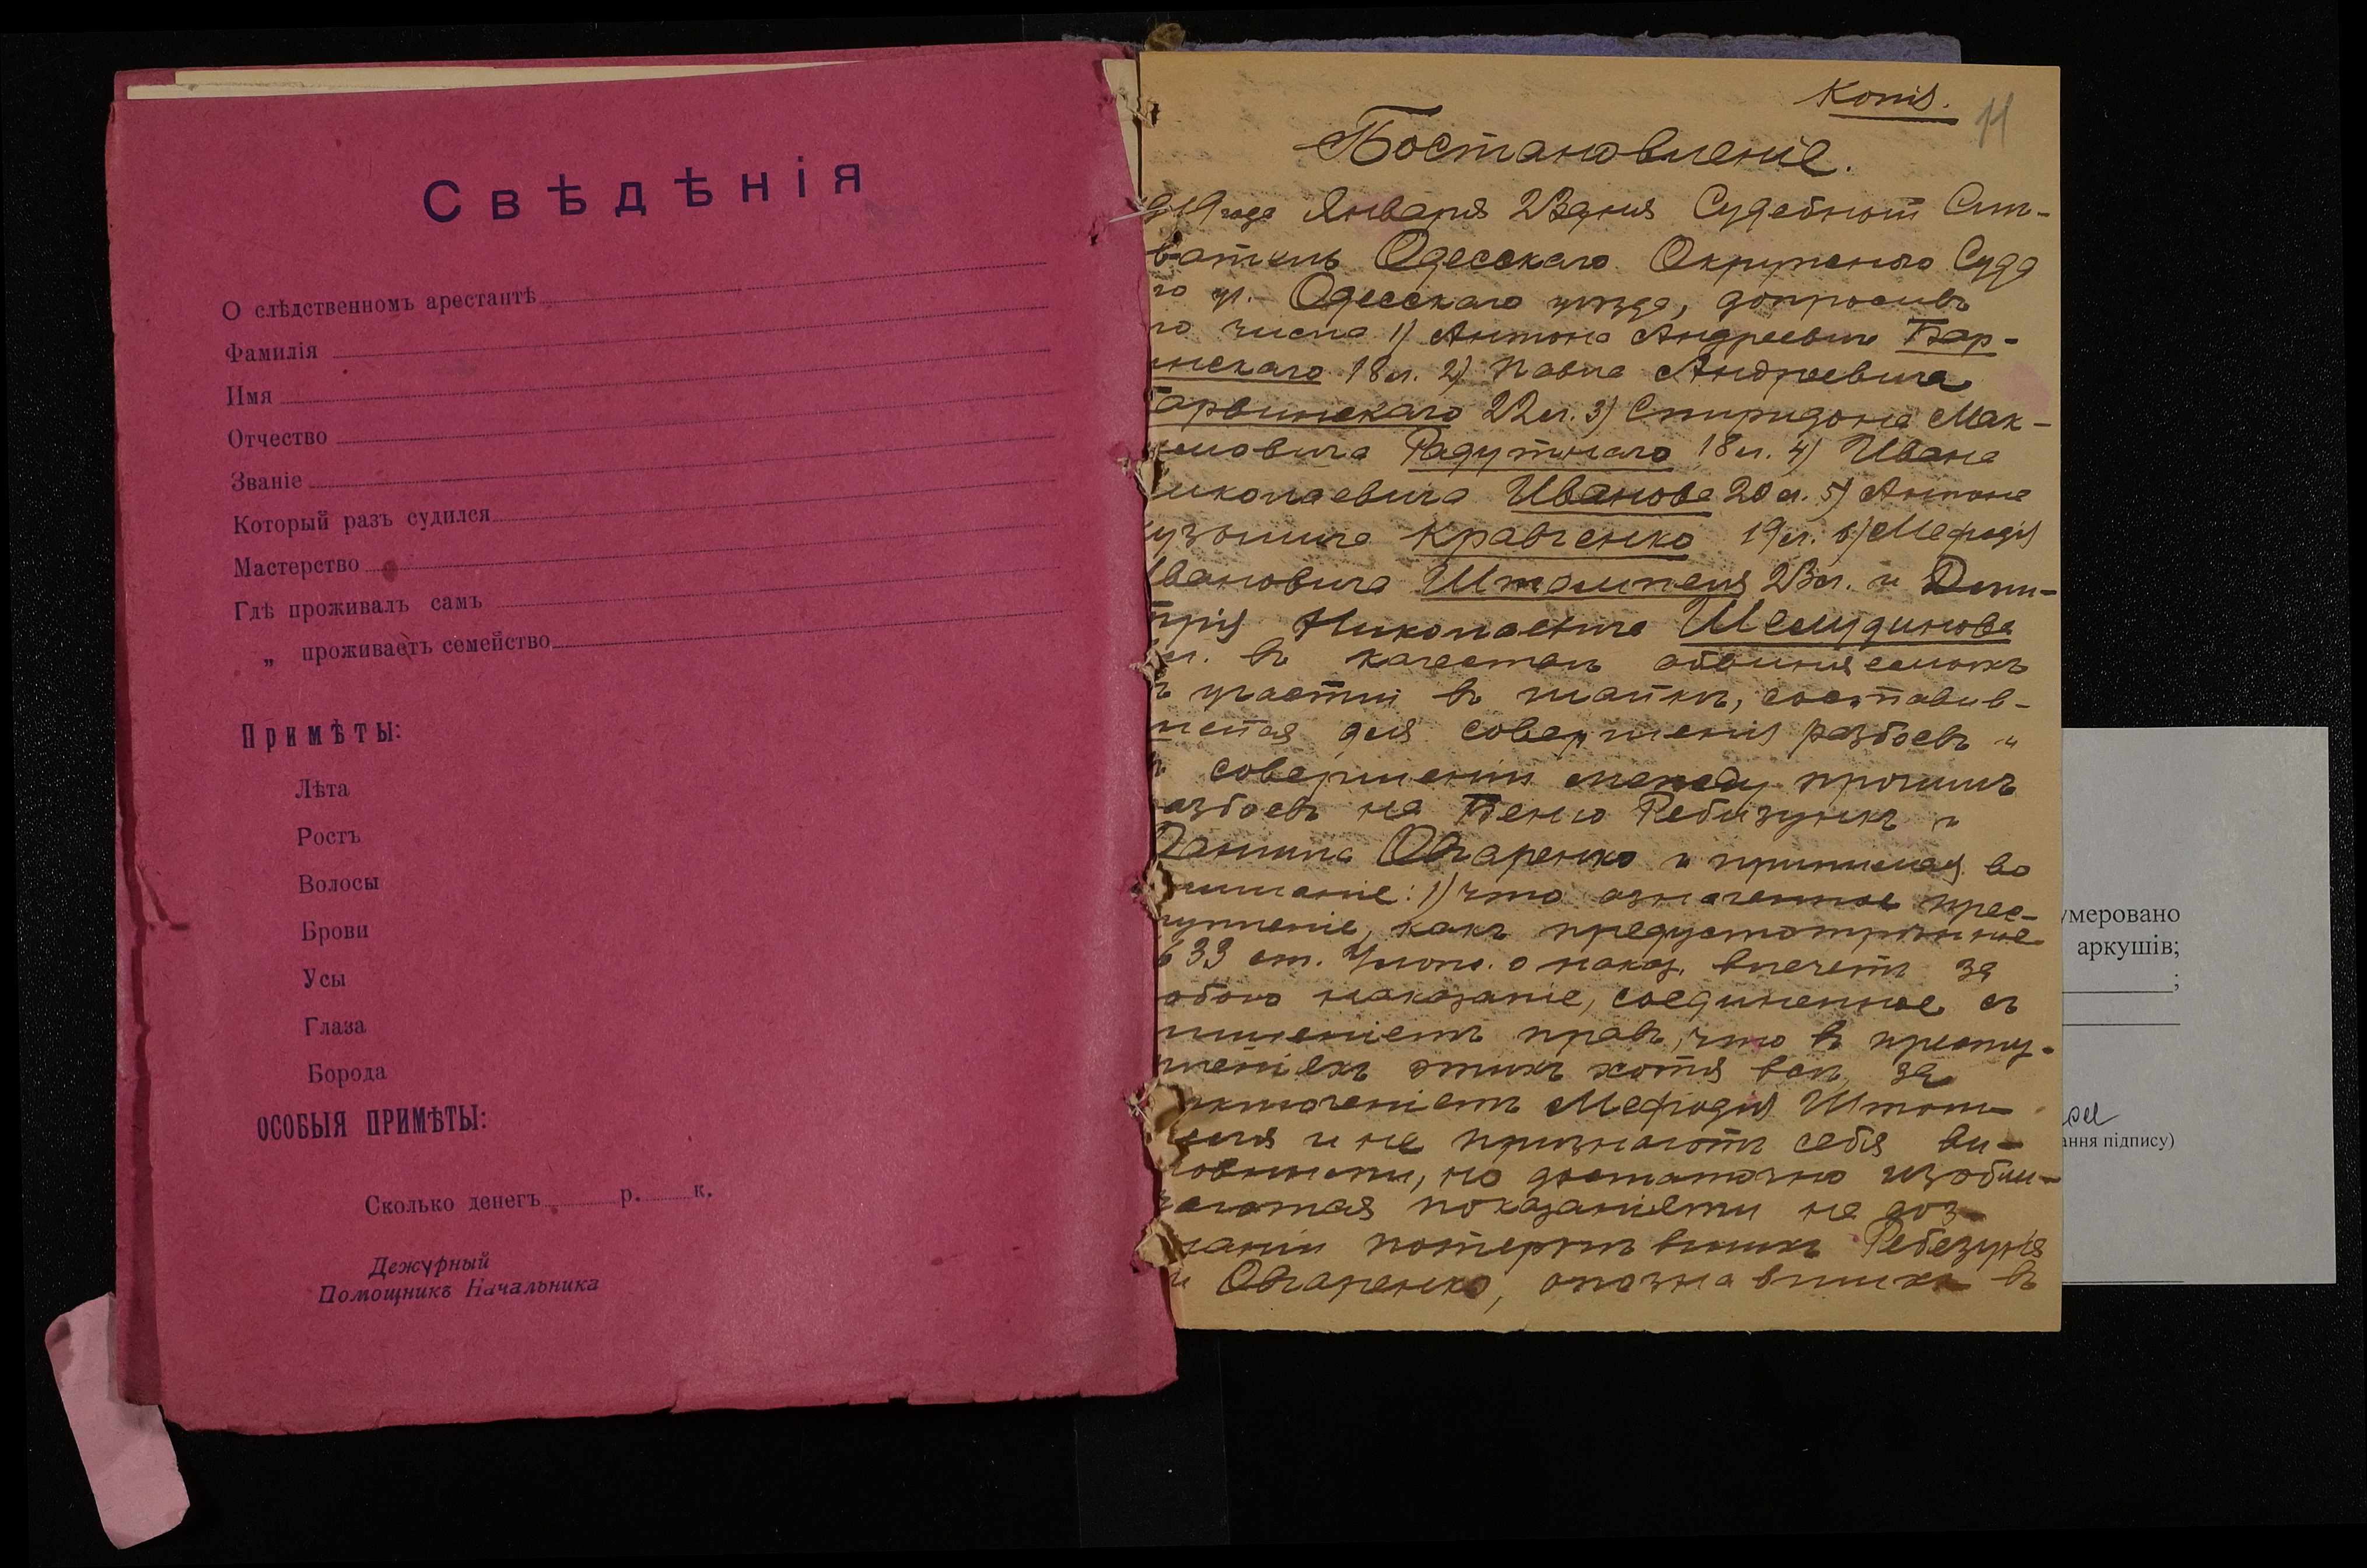 Свѣдѣнія
О слѣдственномъ арестантѣ
Фамилія
Имя
Отчество
Званіе
Который разъ судился
Мастерство
Гдѣ проживалъ самъ
„ проживаетъ семейство
Примѣты:
Лѣта
Ростъ
Волосы
Брови
Усы
Глаза
Борода
ОСОБЫЯ ПРИМѢТЫ:
Сколько денегъ р. к.
Дежурный
Помощникъ Начальника
Копія.
11
Постановленіе.
919 года Января 23 дня Судебный Слѣ-
ватель Одесскаго Окружнаго Суда
го уч. Одесскаго уѣзда, допросивъ
го числа 1) Антона Андреевича Бар-
инскаго 18 л. 2) Павла Андреевича
Барвинскаго 22 л. 3) Спиридона Мак-
симовича Радутнаго 18 л. 4) Ивана
Николаевича Иванова 20 л. 5) Антона
Кузьмича Кравченко 19 л. 6) Мефодія
Ивановича Штомпеля 23 л. и Дми-
трія Николаевича
л. въ качествѣ обвиняемыхъ
въ участіи въ шайкѣ, составив-
шейся для совершенія разбоевъ и
въ совершеніи между прочимъ
разбоевъ на Беню и
Данила Овчаренко и принимая во
вниманіе: 1) что означенное прес-
тупленіе, какъ предусмотрѣнное
1633 ст. Улож. о наказ. влечетъ за
собою наказаніе, соединенное съ
лишеніемъ правъ, что въ престу-
пленіяхъ этихъ хотя всѣ, за
исключеніемъ Мефодія Штом-
пеля и не признаютъ себя ви-
новными, но достаточно изобли-
чаются показаніями на доз-
наніи потерпѣвшихъ
и Овчаренко, опознавшихъ въ
умеровано
аркушів;
;
ання підпису)